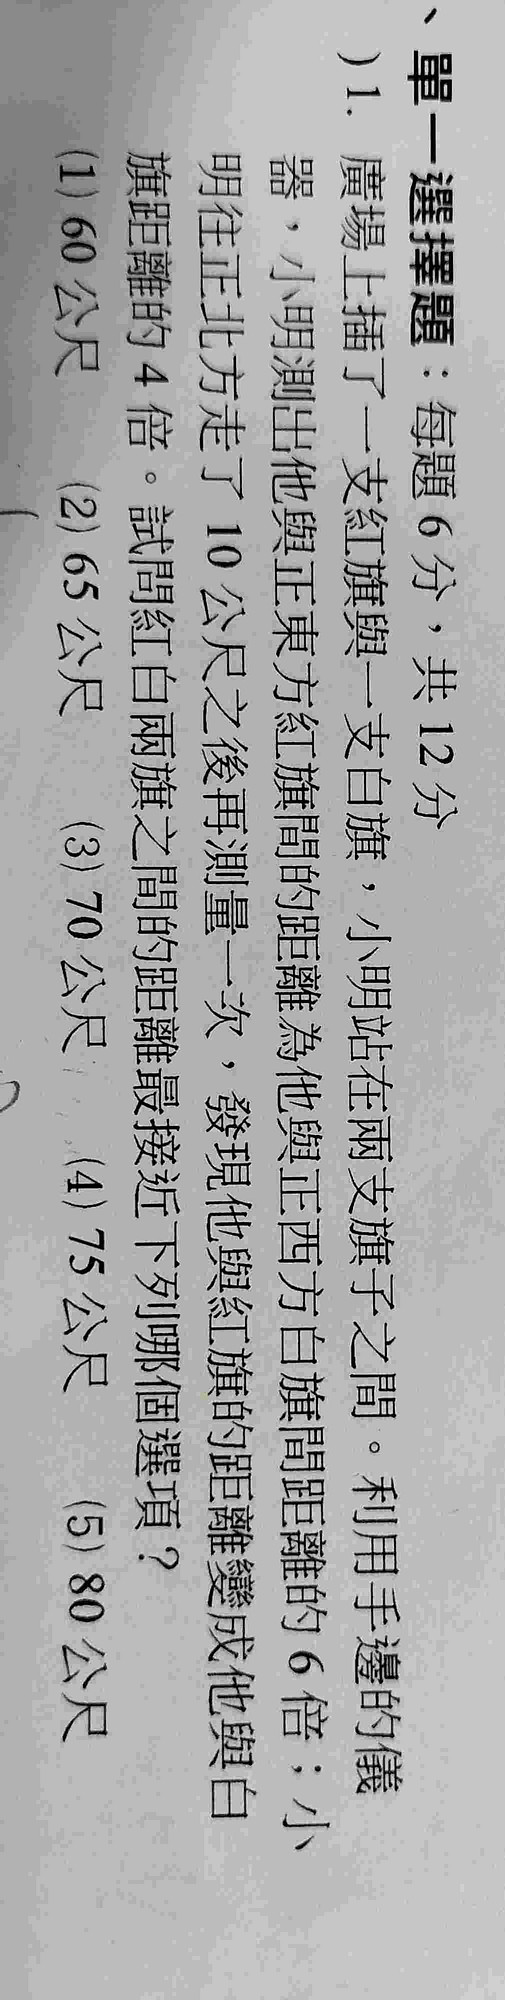 、單一選擇題：每題 6 分，共 12 分
)1. 廣場上插了一支紅旗與一支白旗，小明站在兩支旗子之間。利用手邊的儀
器，小明測出他與正東方紅旗間的距離為他與正西方白旗間距離的 6 倍；小
明往正北方走了 10 公尺之後再測量一次，發現他與紅旗的距離變成他與白
旗距離的 4 倍。試問紅白兩旗之間的距離最接近下列哪個選項？
(1) 60 公尺 (2) 65 公尺 (3) 70 公尺 (4) 75 公尺 (5) 80 公尺